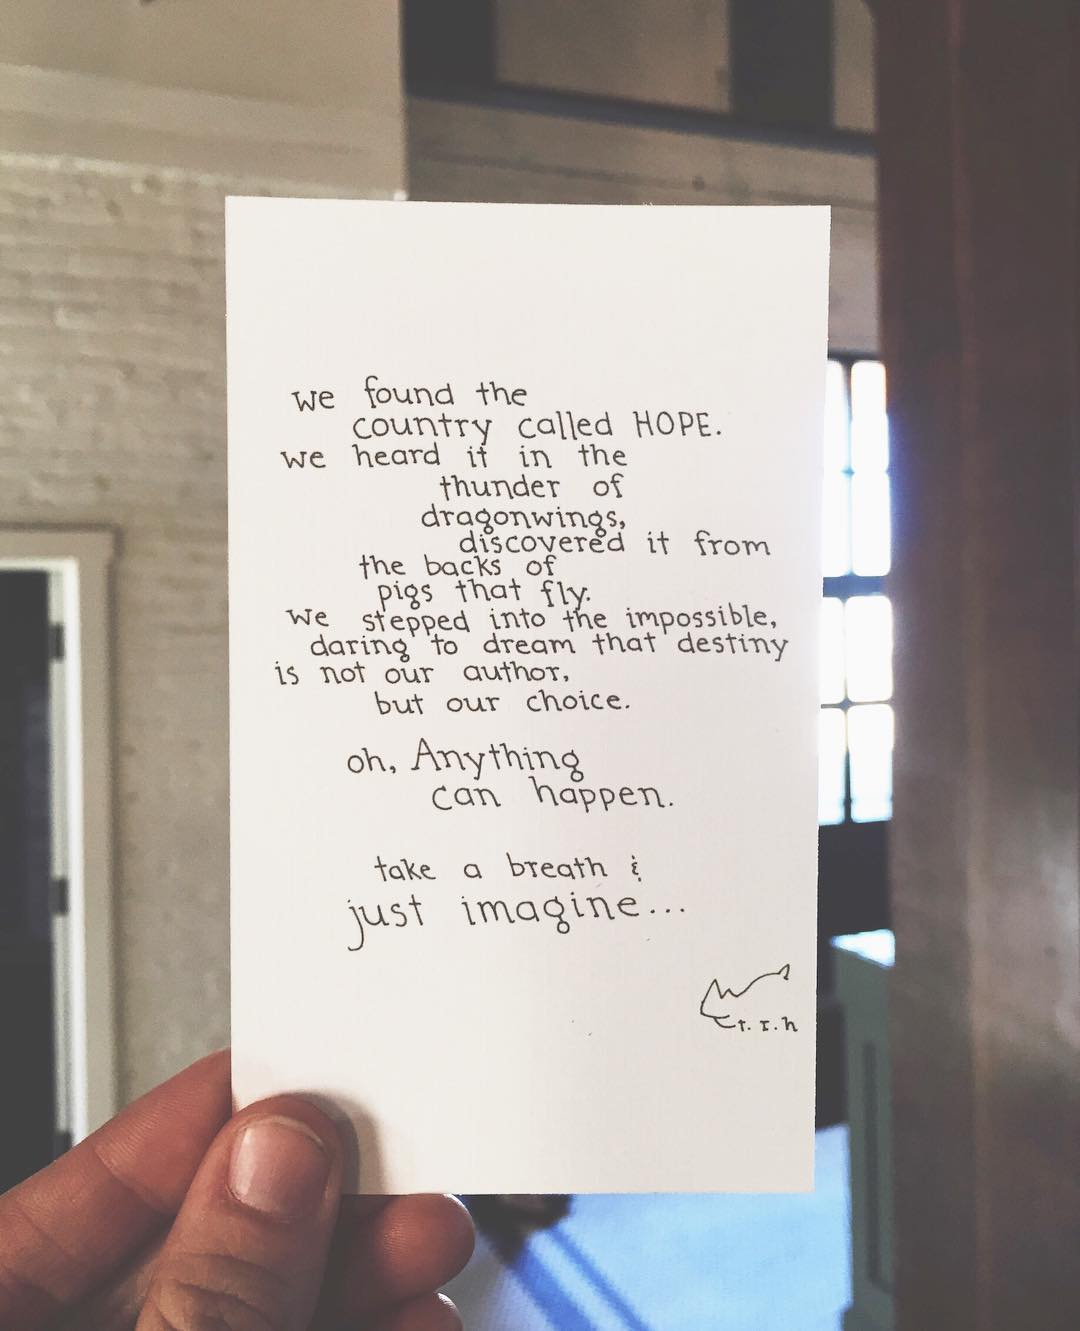 we found the
country called HOPE.
we heard it in the
thunder of
dragonwings,
discovered it from
the backs of
pigs that fly.
we stepped into the impossible,
daring to dream that destiny
is not our author,
but our choice.
oh, Anything
can happen.
take a breath &
just imagine...
t.r.h